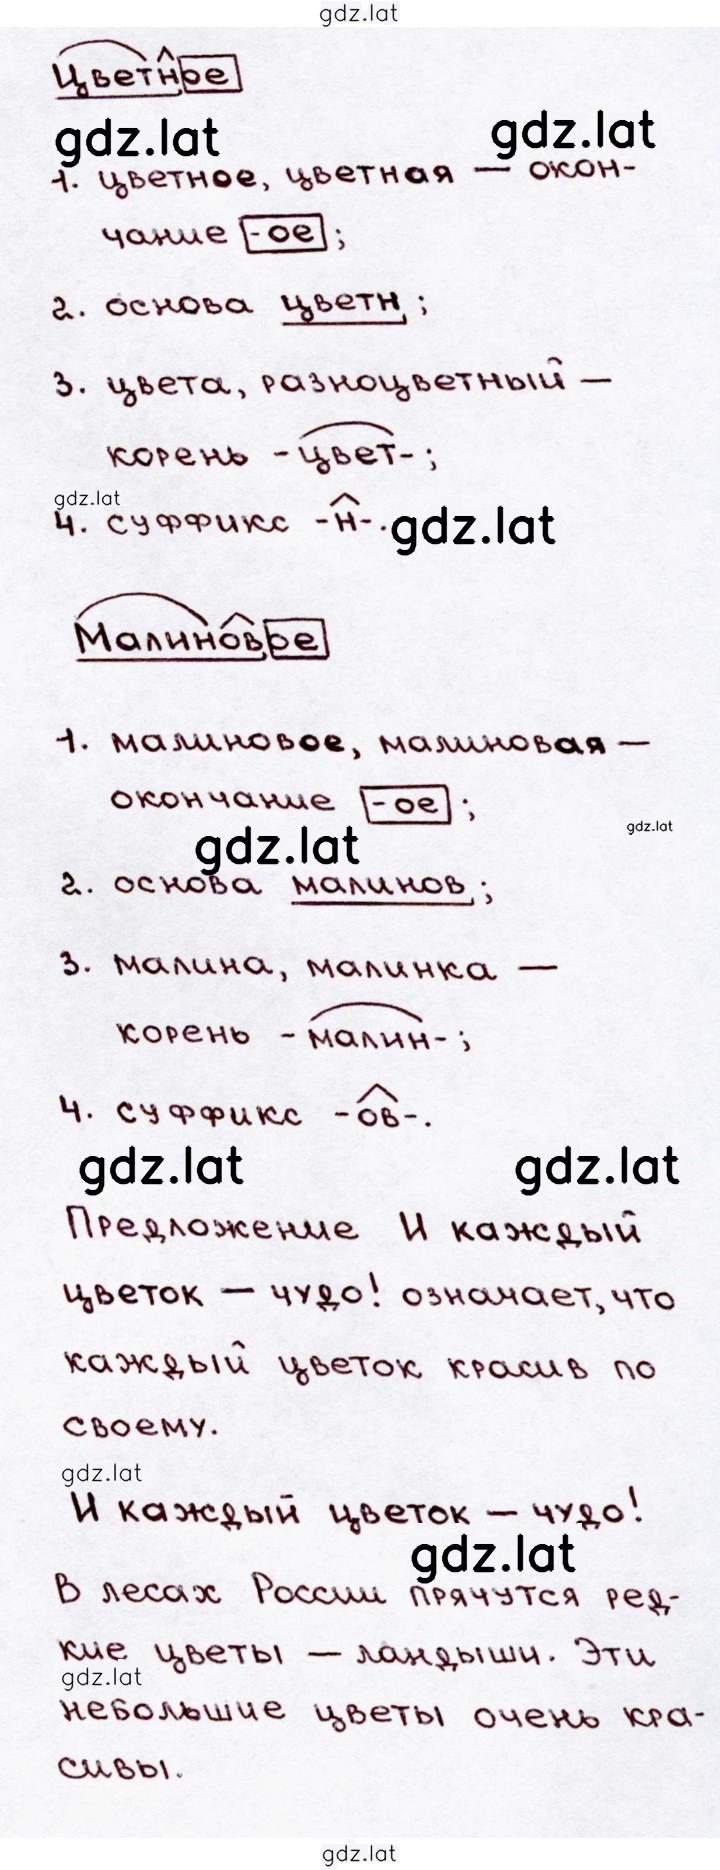 gdz.lat
Цветное
gdz.lat gdz.lat
1. цветное, цветная — окон-
чание -ое ;
2. основа цветн ;
3. цвета, разноцветный —
корень -цвет- ;
gdz.lat
4. суффикс -н-. gdz.lat
Малиновое
1. малиновое, малиновая —
окончание -ое ;
gdz.lat
gdz.lat
2. основа малинов ;
3. малина, малинка —
корень -малин- ;
4. суффикс -ов-.
gdz.lat gdz.lat
Предложение И каждый
цветок — чудо! означает, что
каждый цветок красив по
своему.
gdz.lat
И каждый цветок — чудо!
gdz.lat
В лесах России прячутся ред-
кие цветы — ландыши. Эти
gdz.lat
небольшие цветы очень кра-
сивы.
gdz.lat